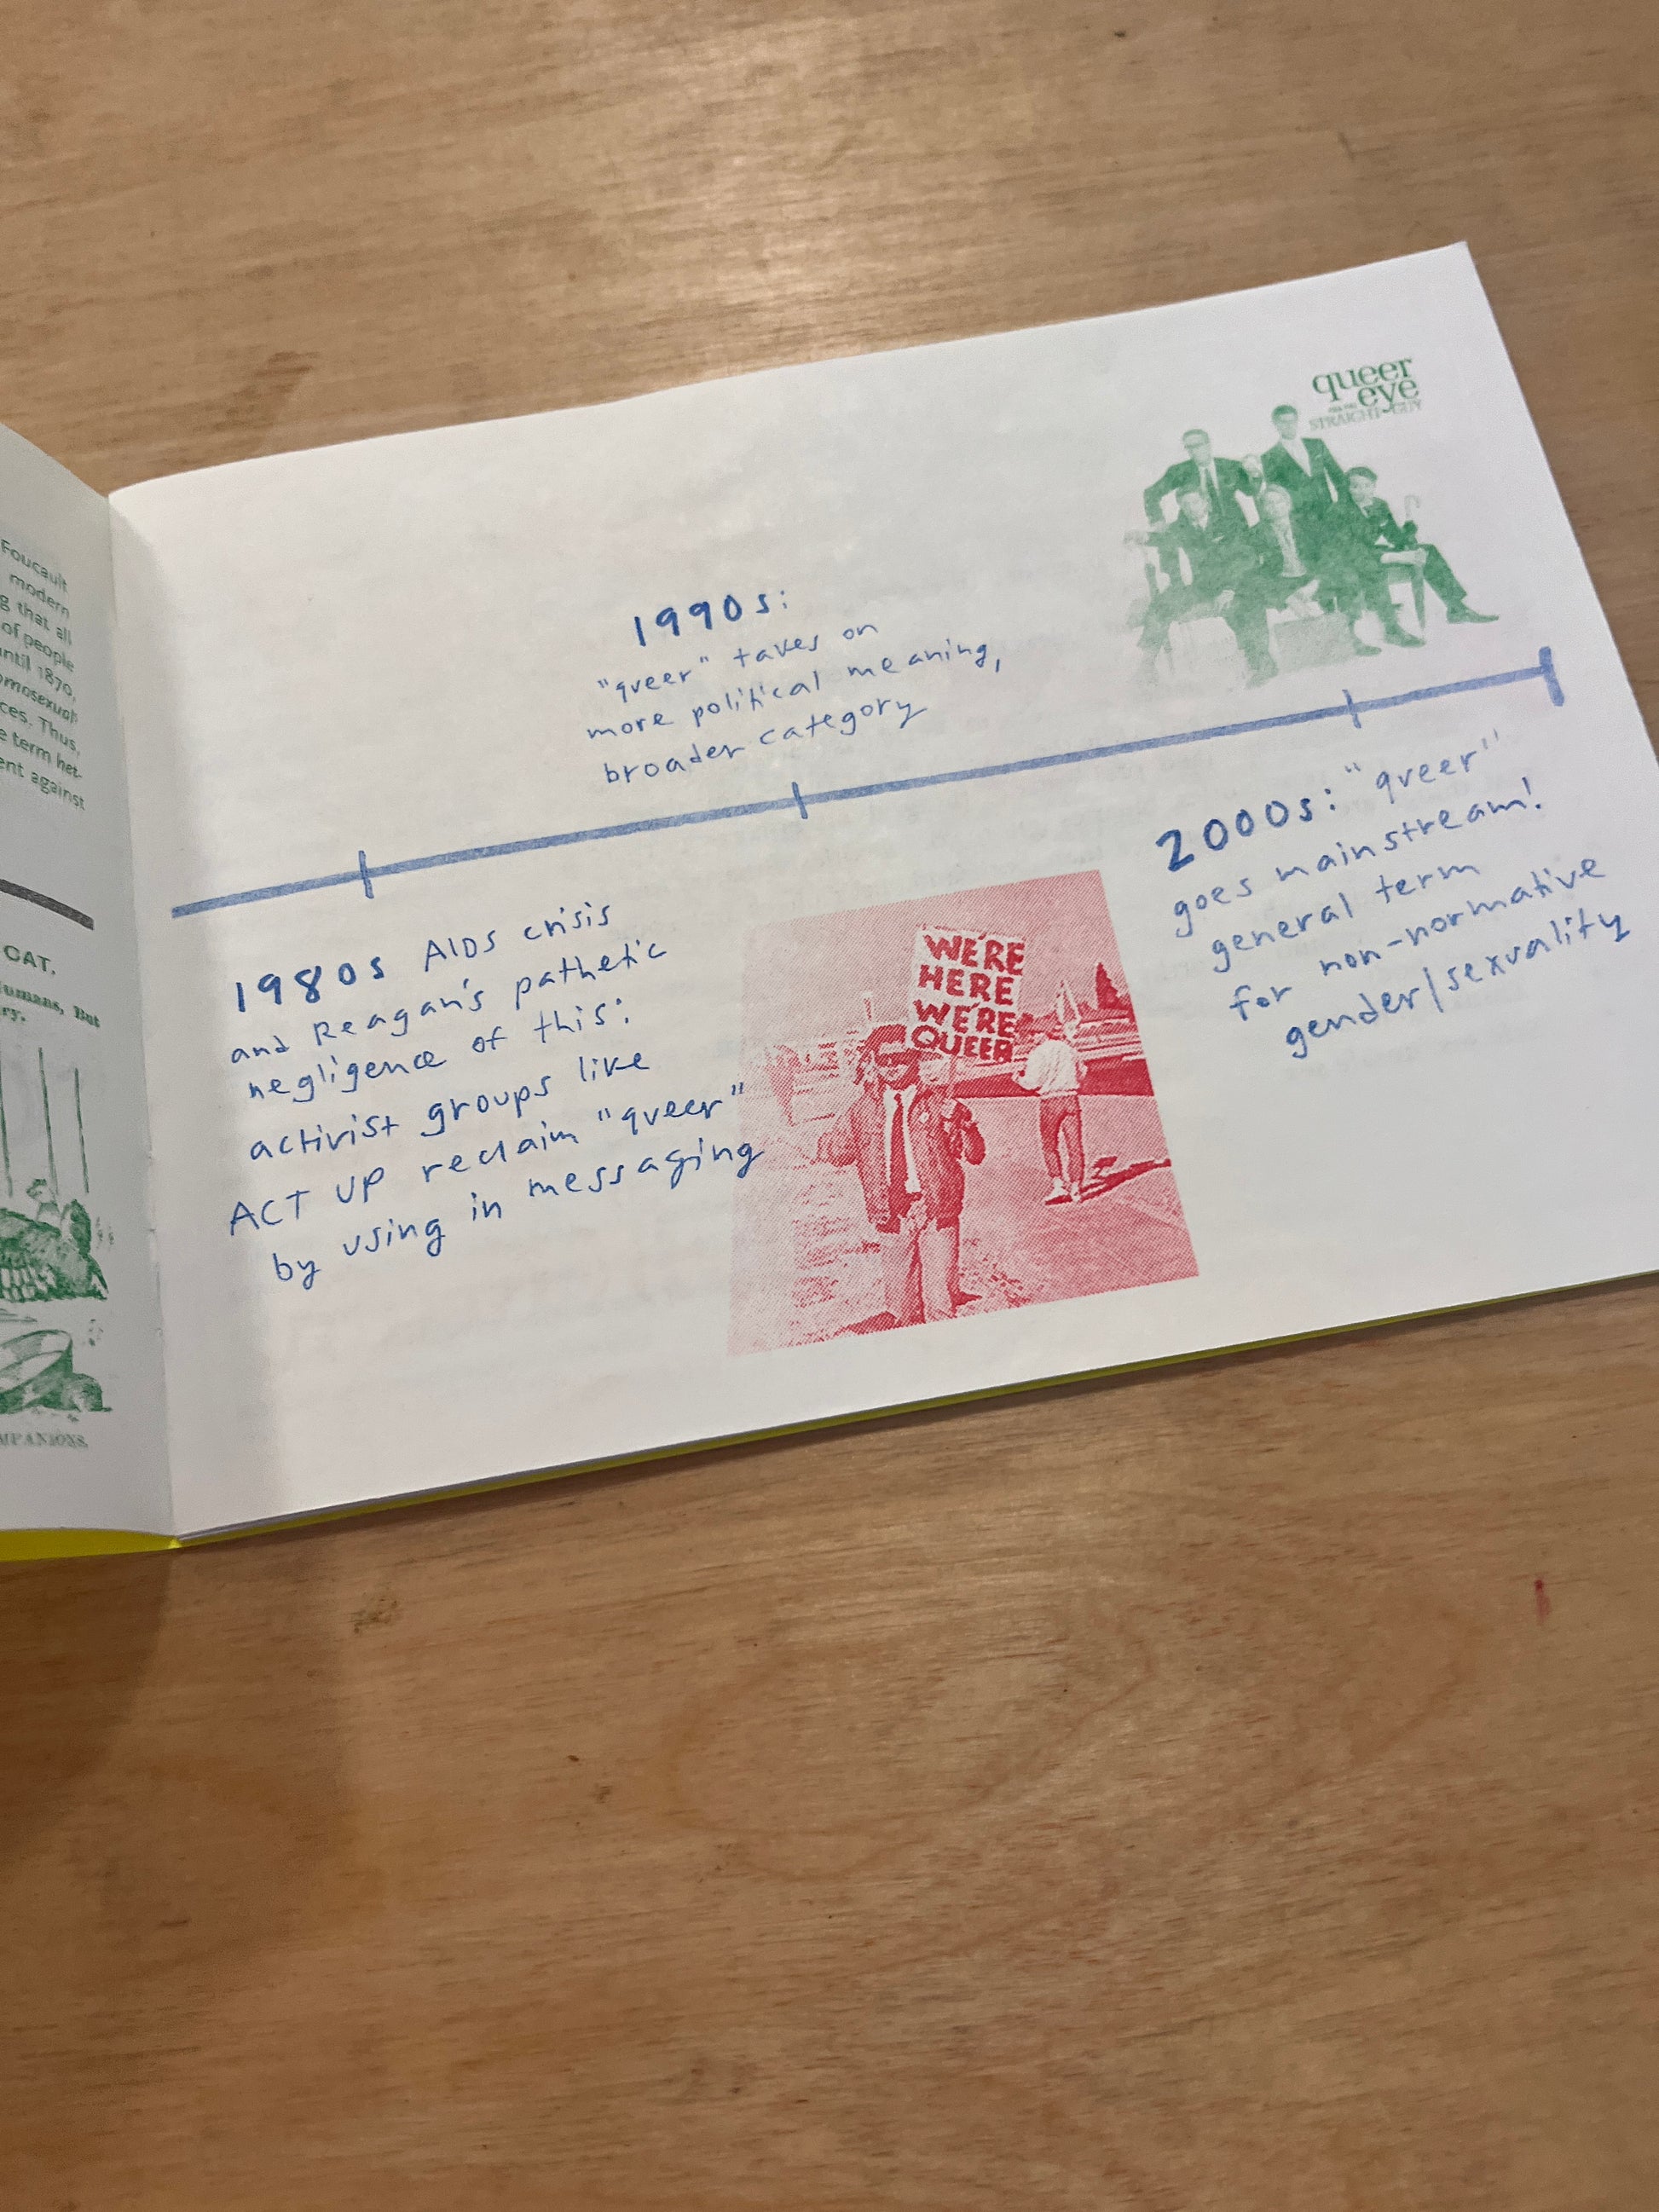 Foucault
modern
g that all
of people
until 1870,
omosexual
ces. Thus,
e term het-
ent against
CAT.
Humans, But
ry.
MPANIONS.
queer
eye
FOR THE
STRAIGHT GUY
1990s:
"queer" takes on
more political meaning,
broader category
1980s AIDS crisis
and Reagan's pathetic
negligence of this:
activist groups like
ACT UP reclaim "queer"
by using in messaging
WE'RE
HERE
WE'RE
QUEER
2000s: "queer"
goes mainstream!
general term
for non-normative
gender/sexuality